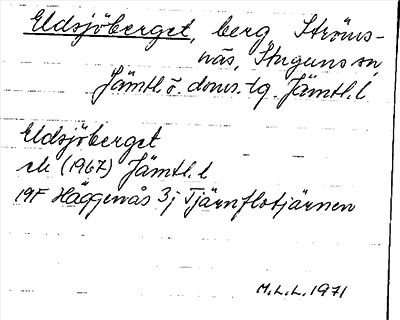 Eldsjöberget, berg Ströms-
näs, Stuguns sn,
Jämtl. ö. doms. tg. Jämtl. l
Eldsjöberget
ek (1967) Jämtl. l
19F Häggenås 3j Tjärnflotjärnen
M.L.L. 1971